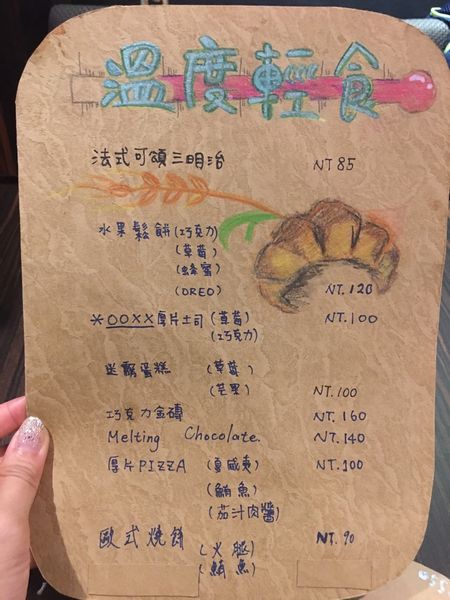 溫度輕食
法式可頌三明治 NT 85
水果鬆餅(巧克力)
(草莓)
(蜂蜜)
(OREO) NT.120
*OOXX厚片土司(草莓) NT.100
(巧克力)
迷霧蛋糕 (草莓)
(芒果) NT.100
巧克力金磚 NT.160
Melting Chocolate. NT.140
厚片PIZZA (夏威夷) NT.100
(鮪魚)
(茄汁肉醬)
歐式燒餅 (火腿) NT.90
(鮪魚)